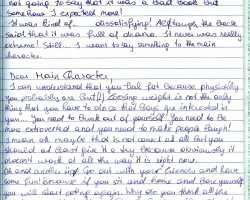 not going to say that it was a bad book but
somehow I expected more!
It was kind of... dissatisfying! Although the back
said that it was full of drama. It never was really
extreme! Still... I want to say something to the main
character.
Dear Main Character,
I can understand that you feel fat because physically
you probably are. But(!) Loosing weight is not the only
thing that you have to do so that Boys are interested in
you. You need to break out of yourself! You need to be
more extroverted and you need to make people laugh!
I mean ok maybe that is not cool at all but you
should at least give it a try because obviously it
doesn't work at all the way it is right now.
Oh and another tip: Go out with your friends and have
some fun! Because if you sit at home and bore yourself
you will start eating again. Why do you think